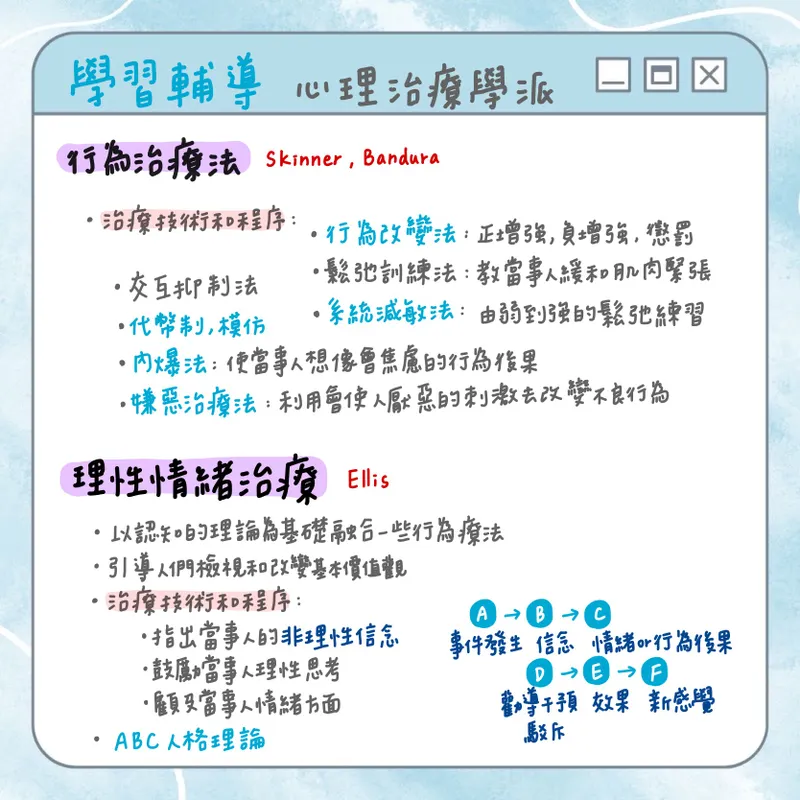 學習輔導 心理治療學派
行為治療法 Skinner, Bandura
・治療技術和程序：
・行為改變法：正增強,負增強,懲罰
・鬆弛訓練法：教當事人緩和肌肉緊張
・系統減敏法：由弱到強的鬆弛練習
・交互抑制法
・代幣制,模仿
・內爆法：使當事人想像會焦慮的行為後果
・嫌惡治療法：利用會使人厭惡的刺激去改變不良行為
理性情緒治療 Ellis
・以認知的理論為基礎融合一些行為療法
・引導人們檢視和改變基本價值觀
・治療技術和程序：
・指出當事人的非理性信念
・鼓勵當事人理性思考
・顧及當事人情緒方面
・ABC人格理論
A→B→C
事件發生 信念 情緒or行為後果
D→E→F
勸導干預 效果 新感覺
駁斥